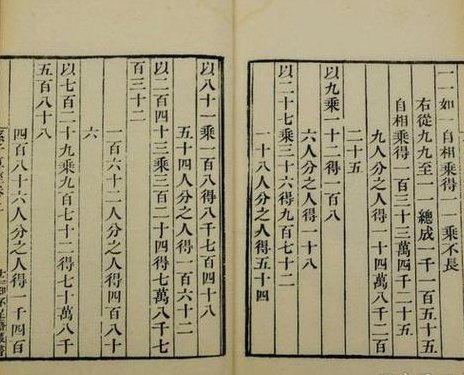 一一如一自相乘得一一乘不長
右從九九至一總成一千一百五十五
自相乘得一百三十三萬四千二十五
九人分之人得一十四萬八千二百
二十五
以九乘一十二得一百八
六人分之人得一十八
以二十七乘三十六得九百七十二
一十八人分之人得五十四
以八十一乘一百八得八千七百四十八
五十四人分之人得一百六十二
以二百四十三乘三百二十四得七萬八千七
百三十二
一百六十二人分之人得四百八十
六
以七百二十九乘九百七十二得七十萬八千
五百八十八
四百八十六人分之人得一千四百